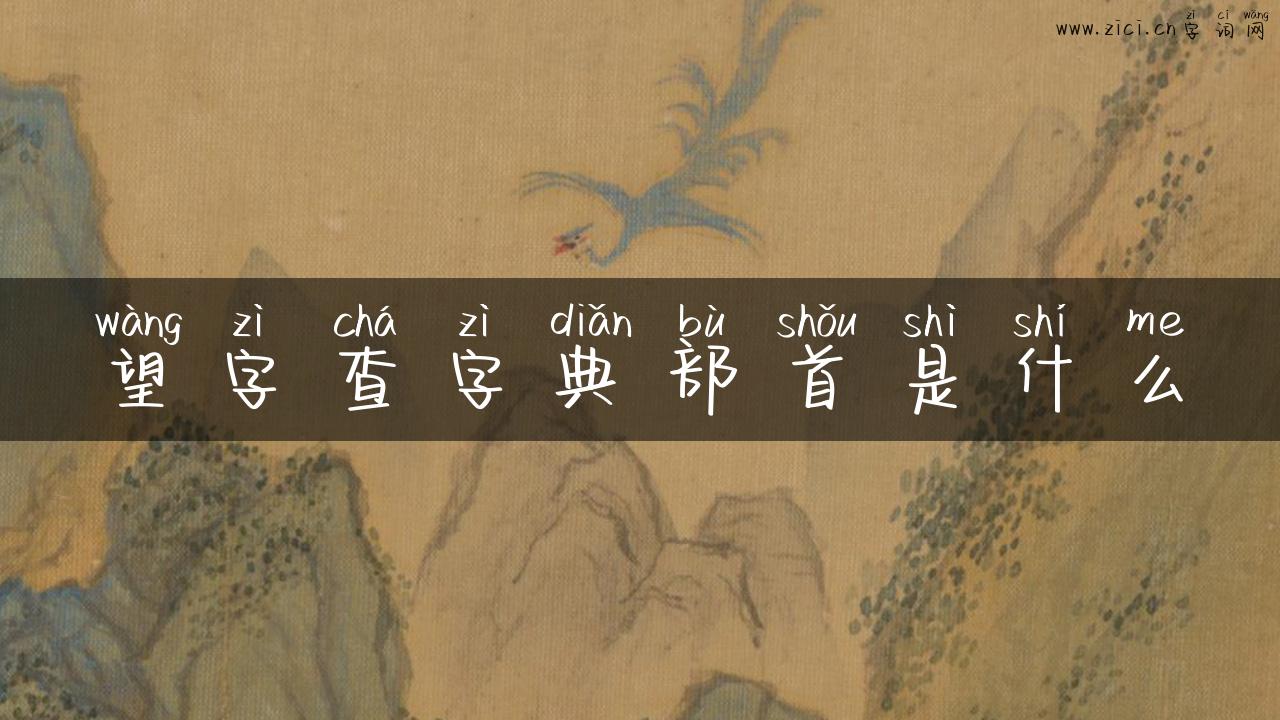 zì cí wǎng
www.zici.cn字词网
wàng zì chá zì diǎn bù shǒu shì shí me
望字查字典部首是什么